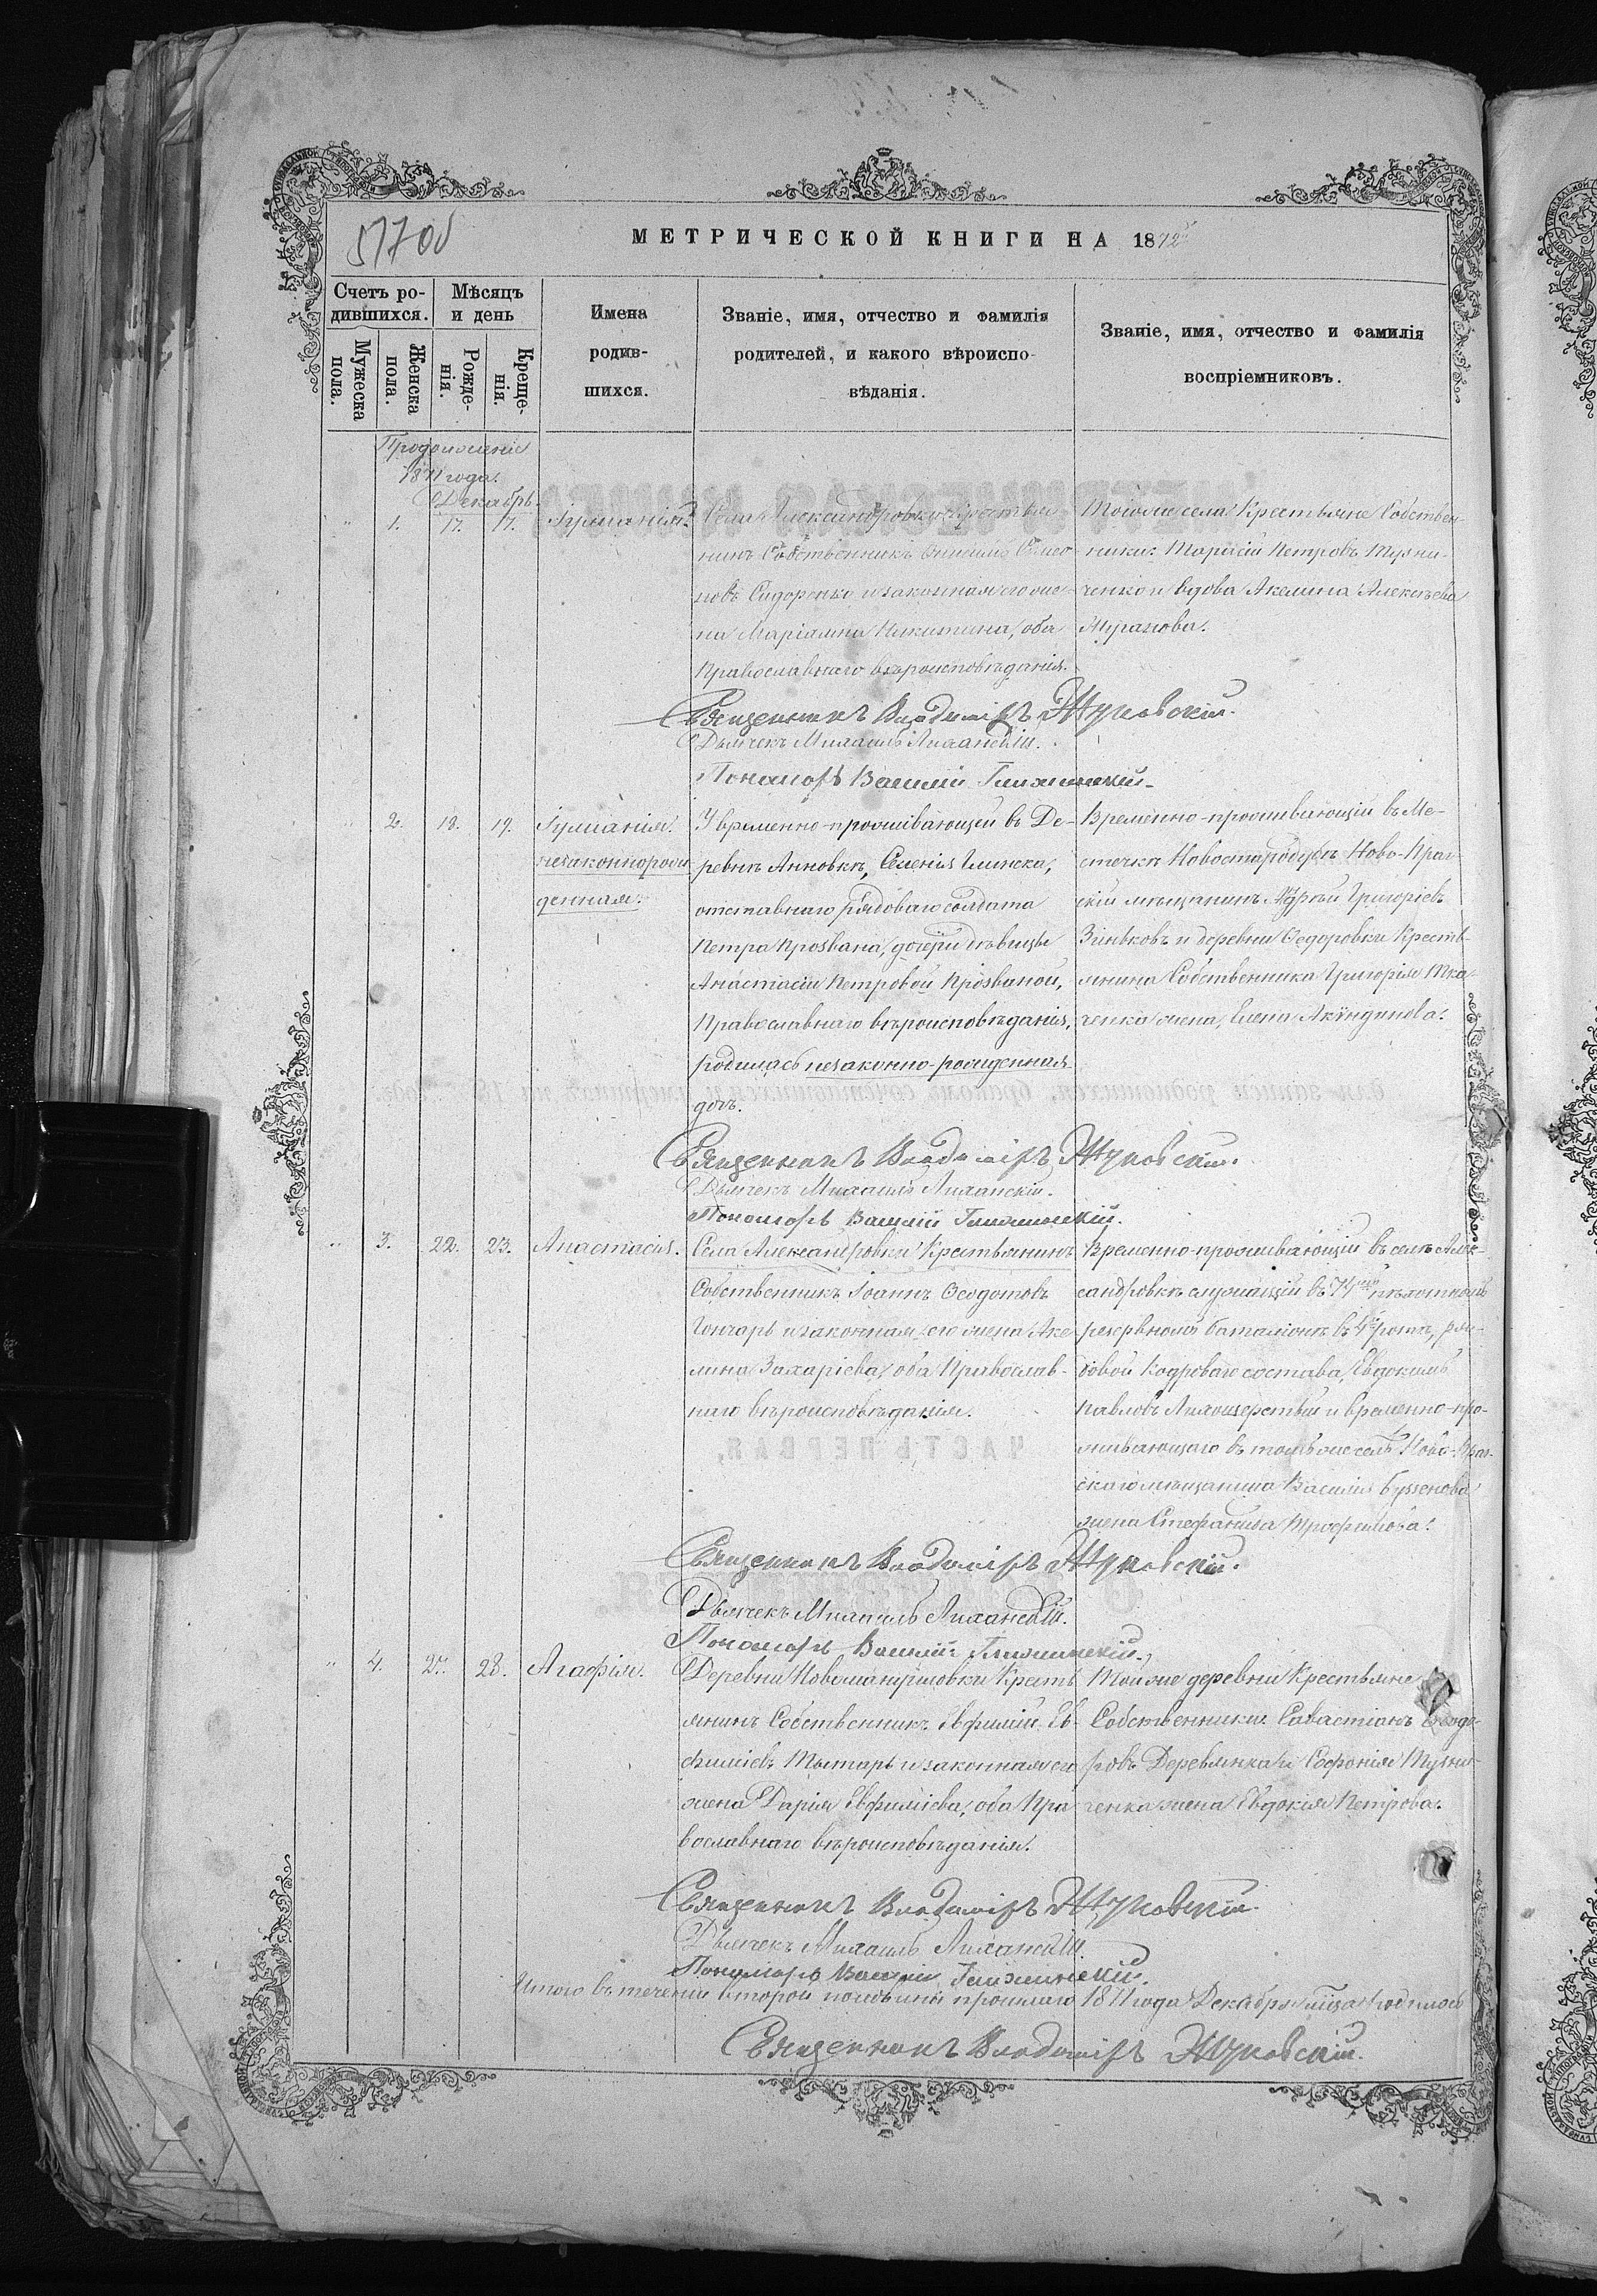 51700
МЕТРИЧЕСКОЙ КНИГИ НА 1872
Счетъ ро-
дившихся.
Мѣсяцъ
и день
Имена
родив-
шихся.
Званіе, имя, отчество и фамилія
родителей, и какого вѣроиспо-
вѣданія.
Званіе, имя, отчество и фамилія
воспріемниковъ.
Мужеска
пола.
Женска
пола.
Рожде-
нія.
Креще-
нія.
Продолженіе
1871 года.
Декабрь.
" 1. 17. 17. Іуліанія.
Села Александровки Крестья-
нинъ Собственникъ Семео-
новъ Сидоренко и законная его же-
на Маріамна Никитина, оба
Православнаго вѣроисповѣданія.
Тогоже села Крестьяне Собствен-
ники: Петровъ Музни-
ченко и вдова Акелина Алексѣева
Журавова.
Священникъ Владиміръ Жуковскій.
Дьячекъ Михаилъ Лиханскій.
Пономарь Василій
" 2. 18. 19. Іуліанія.
незаконнорож
денная.
У временно-проживающей въ Де-
ревнѣ Анновкѣ, Селенія Глинска,
отставнаго рядоваго солдата
Петра Прозвана, дочери дѣвицы
Анастасіи Петровой Прозваной,
Православнаго вѣроисповѣданія,
родилась незаконно-рожденная
дочь.
Временно-проживающій въ Ме-
стечкѣ Новостародубѣ Ново-Праг-
скій мѣщанинъ Григоріевъ
Зиньковъ и деревни Ѳедоровки Кресть-
янина Собственника Григорія Тка-
ченко жена, Елена Акиндинова.
Священникъ Владиміръ Жуковскій.
Дьячекъ Михаилъ Лиханскій.
Пономарь Василій
" 3. 22. 23. Анастасія.
Села Александровки Крестьянинъ
Собственникъ Іоаннъ Ѳеодотовъ
Гончарь и законная его жена Аке-
лина Захаріева, оба Православ-
наго вѣроисповѣданія.
Временно-проживающій въ селѣ Алек-
сандровкѣ служащій въ 74 пѣхотномъ
резервномъ баталіонѣ въ 4 ротѣ, ря-
довой Кадроваго состава, Евдокимъ
Павловъ и временно-про-
живающаго въ томъ же селѣ Ново-Праг-
скаго мѣщанина Василія
жена Стефанида Трофимова.
Священникъ Владиміръ Жуковскій.
Дьячекъ Михаилъ Лиханскій.
Пономарь Василій
" 4. 27. 28. Агафія.
Деревни Кресть
янинъ Собственникъ Евфимій Ев-
фиміевъ Тытарь и законная его
жена Дарія Евфиміева, оба Пра
вославнаго вѣроисповѣданія.
Той же деревни Крестьяне
Собственники: Савастіанъ Ѳеодо-
ровъ Деревянка и Софонія Музни-
ченка жена Евдокія Петрова.
Священникъ Владиміръ Жуковскій.
Дьячекъ Михаилъ Лиханскій.
Пономарь Василій
Итого въ теченіи второй половины прошлаго 1871 года Декабря м-ца родилось
Священникъ Владиміръ Жуковскій.